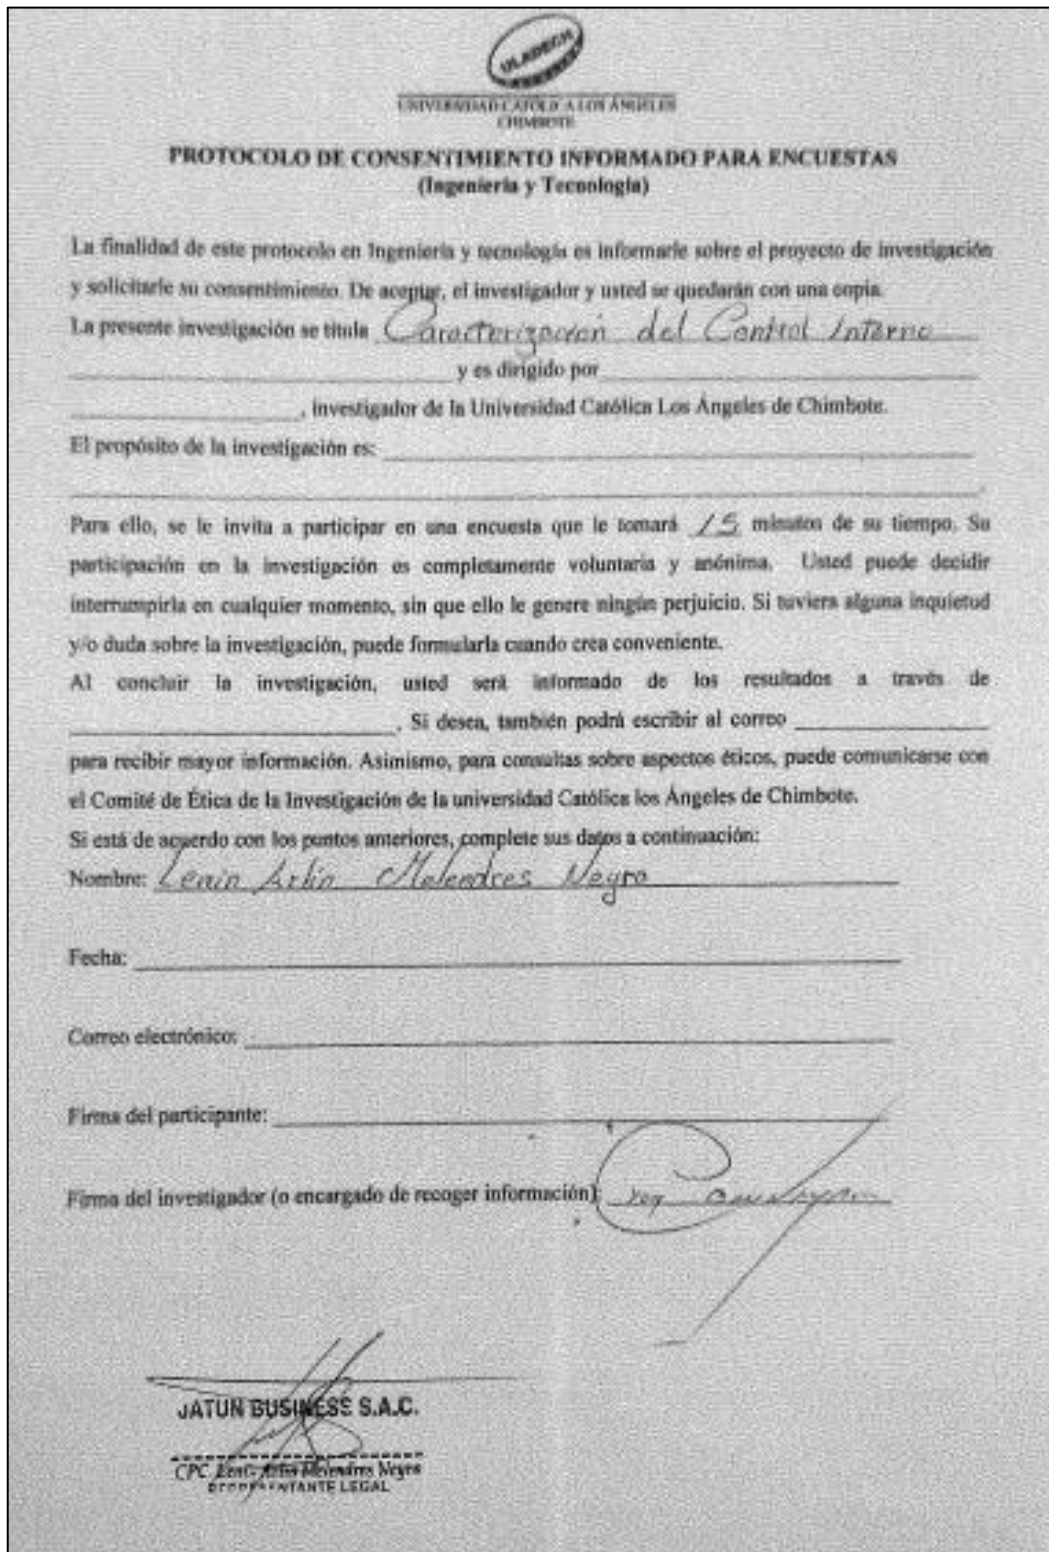 ULADECH
UNIVERSIDAD CATÓLICA LOS ÁNGELES
CHIMBOTE
PROTOCOLO DE CONSENTIMIENTO INFORMADO PARA ENCUESTAS
(Ingeniería y Tecnología)
La finalidad de este protocolo en Ingeniería y tecnología es informarle sobre el proyecto de investigación
y solicitarle su consentimiento. De aceptar, el investigador y usted se quedarán con una copia.
La presente investigación se titula Caracterización del Control Interno
y es dirigido por
, investigador de la Universidad Católica Los Ángeles de Chimbote.
El propósito de la investigación es:
Para ello, se le invita a participar en una encuesta que le tomará 15 minutos de su tiempo. Su
participación en la investigación es completamente voluntaria y anónima. Usted puede decidir
interrumpirla en cualquier momento, sin que ello le genere ningún perjuicio. Si tuviera alguna inquietud
y/o duda sobre la investigación, puede formularla cuando crea conveniente.
Al concluir la investigación, usted será informado de los resultados a través de
. Si desea, también podrá escribir al correo
para recibir mayor información. Asimismo, para consultas sobre aspectos éticos, puede comunicarse con
el Comité de Ética de la Investigación de la universidad Católica los Ángeles de Chimbote.
Si está de acuerdo con los puntos anteriores, complete sus datos a continuación:
Nombre: Lenin Arlin Melendres Negro
Fecha:
Correo electrónico:
Firma del participante:
Firma del investigador (o encargado de recoger información):
JATUN BUSINESS S.A.C.
CPC. Melendres Negro
REPRESENTANTE LEGAL